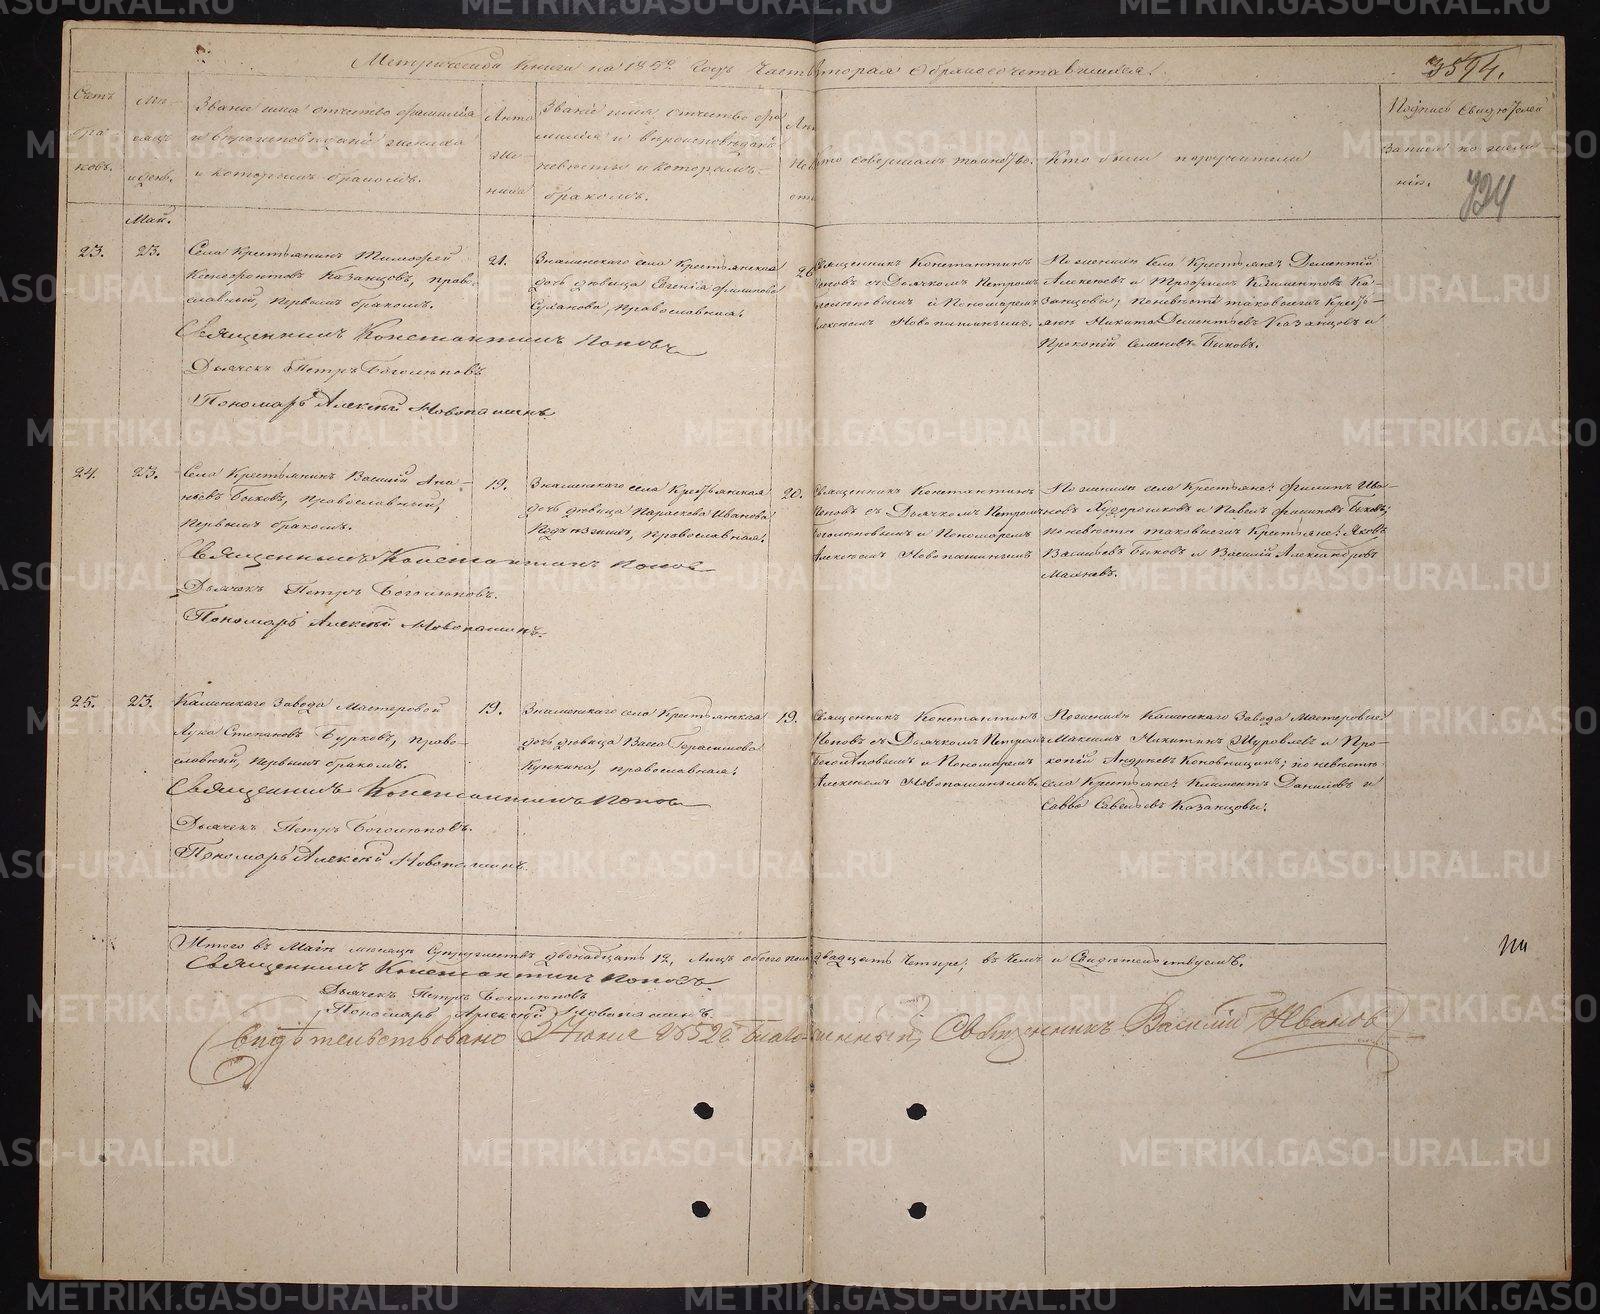 Метрической книги на 1852 годъ часть вторая о бракосочетавшихся.
3594.
Счетъ браковъ.
Мѣсяцъ и день.
Званіе имя отчество фамилія
и вѣроисповѣданіе жениха
и которымъ бракомъ.
Лѣта жениха
Званіе имя отчество фа
милія и вѣроисповѣданіе
невѣсты и которымъ
бракомъ.
Кто совершалъ таинство.
Кто были поручители
Подпись свидѣтелей
записи по желанію.
734
Май.
23.
23.
Села Крестьянинъ Тимофей
Ксенофонтовъ Казанцовъ, право-
славный, первымъ бракомъ.
21.
Знаменскаго села Крестьянская
дочь дѣвица Евгенія Филипова
Суханова, православная.
20
Священникъ Константинъ
Поповъ съ Дьячкомъ Петромъ
Боголюбовымъ и Пономаремъ
Алексѣемъ Новопашинымъ.
По женихѣ села Крестьяне: Дементій
Алексѣевъ и Трофимъ Климентовъ Ка-
занцовы; по невѣстѣ таковыеже Кресть-
яне Никита Дементьевъ Казанцовъ и
Прокопій Семеновъ Быковъ.
Священникъ Константинъ Поповъ
Дьячекъ Петръ Боголюповъ
Пономарь Алексѣй Новопашинъ
24.
23.
Села Крестьянинъ Василій Ана-
ньевъ Быковъ, православный,
первымъ бракомъ.
19.
Знаменскаго села Крестьянская
дочь дѣвица Параскова Иванова
православная.
20.
Священникъ Константинъ
Поповъ съ Дьячкомъ Петромъ
Боголюповымъ и Пономаремъ
Алексѣемъ Новопашинымъ
По женихѣ села Крестьяне: Филипъ Ива-
новъ Худорошковъ и Павелъ Филиповъ Быковъ;
по невѣсты таковыеже Крестьяне: Яковъ
Васильевъ Быковъ и Василій Александровъ
Махневъ.
Священникъ Константинъ Поповъ
Дьячекъ Петръ Боголюповъ.
Пономарь Алексѣй Новопашинъ.
25.
23.
Каменскаго Завода Мастеровой
Лука Степановъ Бурковъ, право-
славный, первымъ бракомъ.
19.
Знаменскаго села Крестьянская
дочь дѣвица Васса Герасимова
Кункина, православная.
19.
Священникъ Константинъ
Поповъ съ Дьячкомъ Петромъ
Боголюповымъ и Пономаремъ
Алексѣемъ Новопашинымъ.
По женихѣ Каменскаго Завода Мастеровые:
Максимъ Никитинъ Журавлевъ и Про-
копій Андреевъ Коновницинъ; по невѣстѣ
села Крестьяне: Климентъ Даниловъ и
Савва Савельевъ Казанцовы.
Священникъ Константинъ Поповъ
Дьячекъ Петръ Боголюповъ.
Пономарь Алексѣй Новопашинъ.
Итого въ Маѣ месяцѣ Супружествъ двенадцать 12, лицъ обоего пола двадцать четыре; въ чемъ и Свидетельствуемъ.
Священникъ Константинъ Поповъ.
Дьячекъ Петръ Боголюповъ
Пономарь Алексѣй Новопашинъ.
Свидѣтельствовано 3 Іюня 1852 г. Благочинный, Священникъ Василій Ивановъ